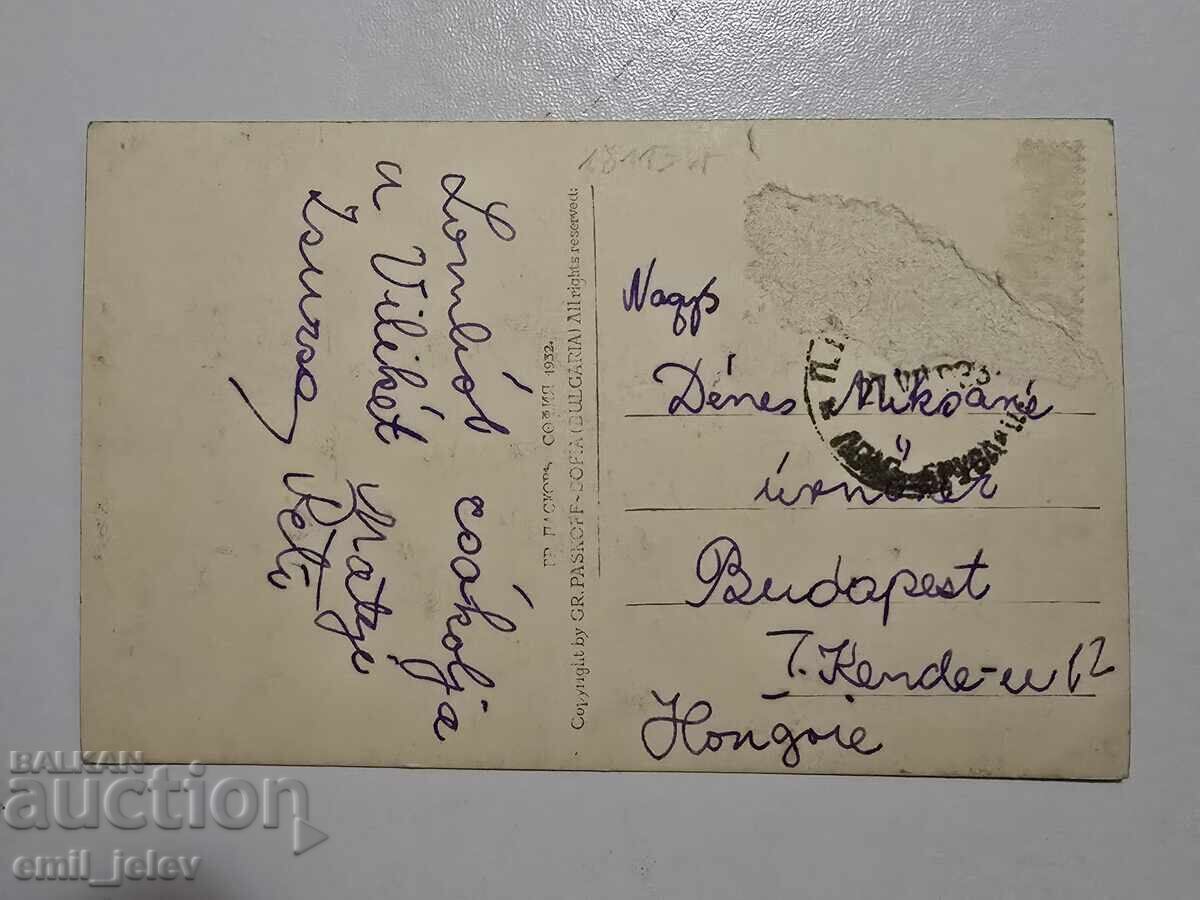 Lombót csókolja
a Vilikét
Zsurza Keti
ГР. ПАСКОВЪ, СОФИЯ 1932.
Copyright by GR. PASKOFF-SOFIA (BULGARIA) All rights reserved:
Nagys
Dénes Miklósné
úrnőnek
Budapest
I. Kende-u 12
Hongrie
BALKAN
auction
emil_jelev